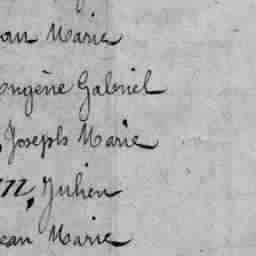 an Marie
Eugène Gabriel
, Joseph Marie
, Julien
ean Marie